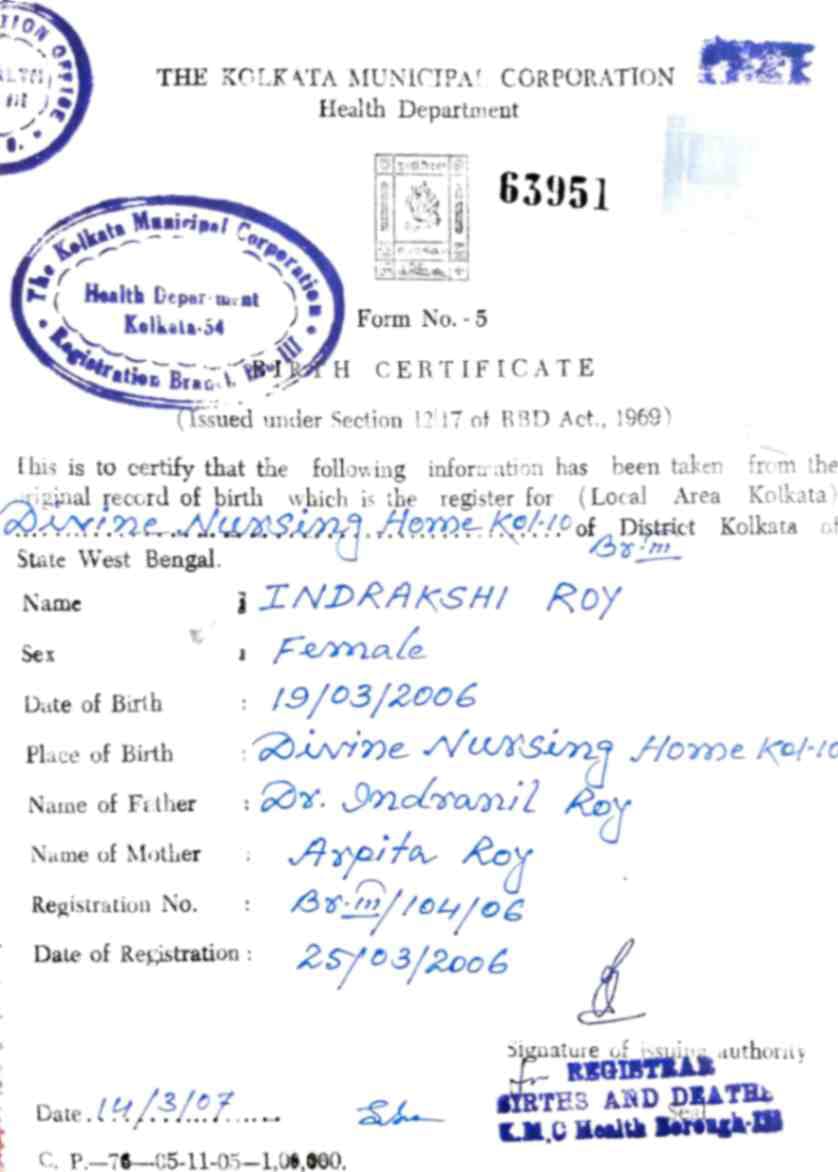 TION OFFICE
THE KOLKATA MUNICIPAL CORPORATION
Health Department
63951
The Kolkata Municipal Corporation
Health Department
Kolkata-54
Registration Branch
Form No. - 5
BIRTH CERTIFICATE
(Issued under Section 12/17 of RBD Act., 1969)
This is to certify that the following information has been taken from the
original record of birth which is the register for (Local Area Kolkata)
Divine Nursing Home Kol-10 of District Kolkata of
Br-III
State West Bengal.
Name : INDRAKSHI ROY
Sex : Female
Date of Birth : 19/03/2006
Place of Birth : Divine Nursing Home Kol-10
Name of Father : Dr. Indranil Roy
Name of Mother : Arpita Roy
Registration No. : Br.III/104/06
Date of Registration : 25/03/2006
Signature of issuing authority
REGISTRAR
BIRTHS AND DEATHS
Seal
K.M.C Health Borough-III
Date. 14/3/07
C. P.—76—05-11-05—1,00,000.